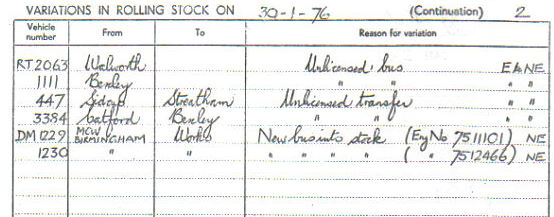 VARIATIONS IN ROLLING STOCK ON 30-1-76 (Continuation) 2
Vehicle number From To Reason for variation
RT2063 Walworth Unlicensed bus E&NE
1111 Bexley " " " "
447 Sidcup Streatham Unlicensed transfer " "
3384 Catford Bexley " " " "
DM1229 MCW BIRMINGHAM Works New bus into stock (Eng No 7511101) NE
1230 " " " " " " ( " 7512466) NE